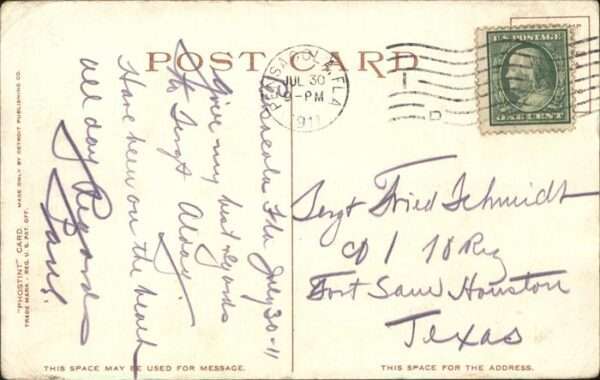 POST CARD
PENSACOLA, FLA.
JUL 30
9-PM
1911
U.S. POSTAGE
ONE CENT
Pensacola Fla July 30-11
Give my best regards
to Sergt
Have been on the beach
all day Regards
Paul
Sergt Fried Schmidt
CO 1 18 Reg
Fort Sam Houston
Texas
"PHOSTINT" CARD. MADE ONLY BY DETROIT PUBLISHING CO.
TRADE MARK REG. U.S. PAT. OFF.
THIS SPACE MAY BE USED FOR MESSAGE.
THIS SPACE FOR THE ADDRESS.